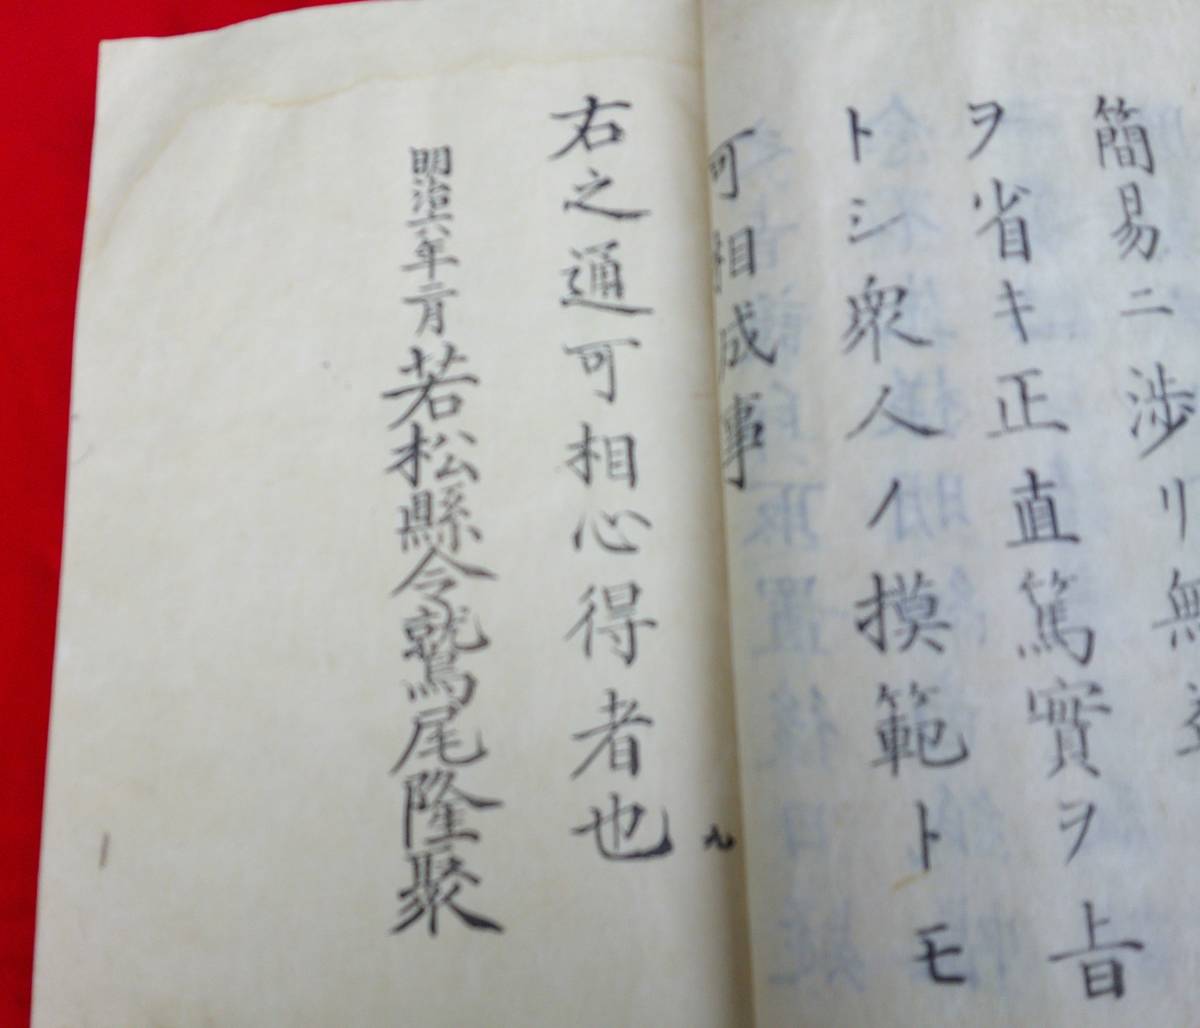 簡易ニ渉リ無
ヲ省キ正直篤實ヲ旨
トシ衆人ノ摸範トモ
可相成事
九
右之通可相心得者也
明治六年二月若松縣令鷲尾隆聚